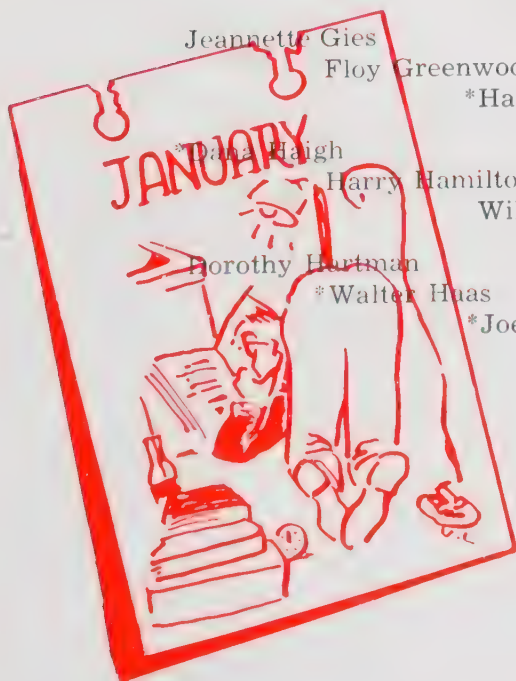 Jeannette Gies
Floy Greenwoo
*Ha
JANUARY
*Dana Haigh
Harry Hamilto
Wi
Dorothy Hartman
*Walter Haas
*Joe